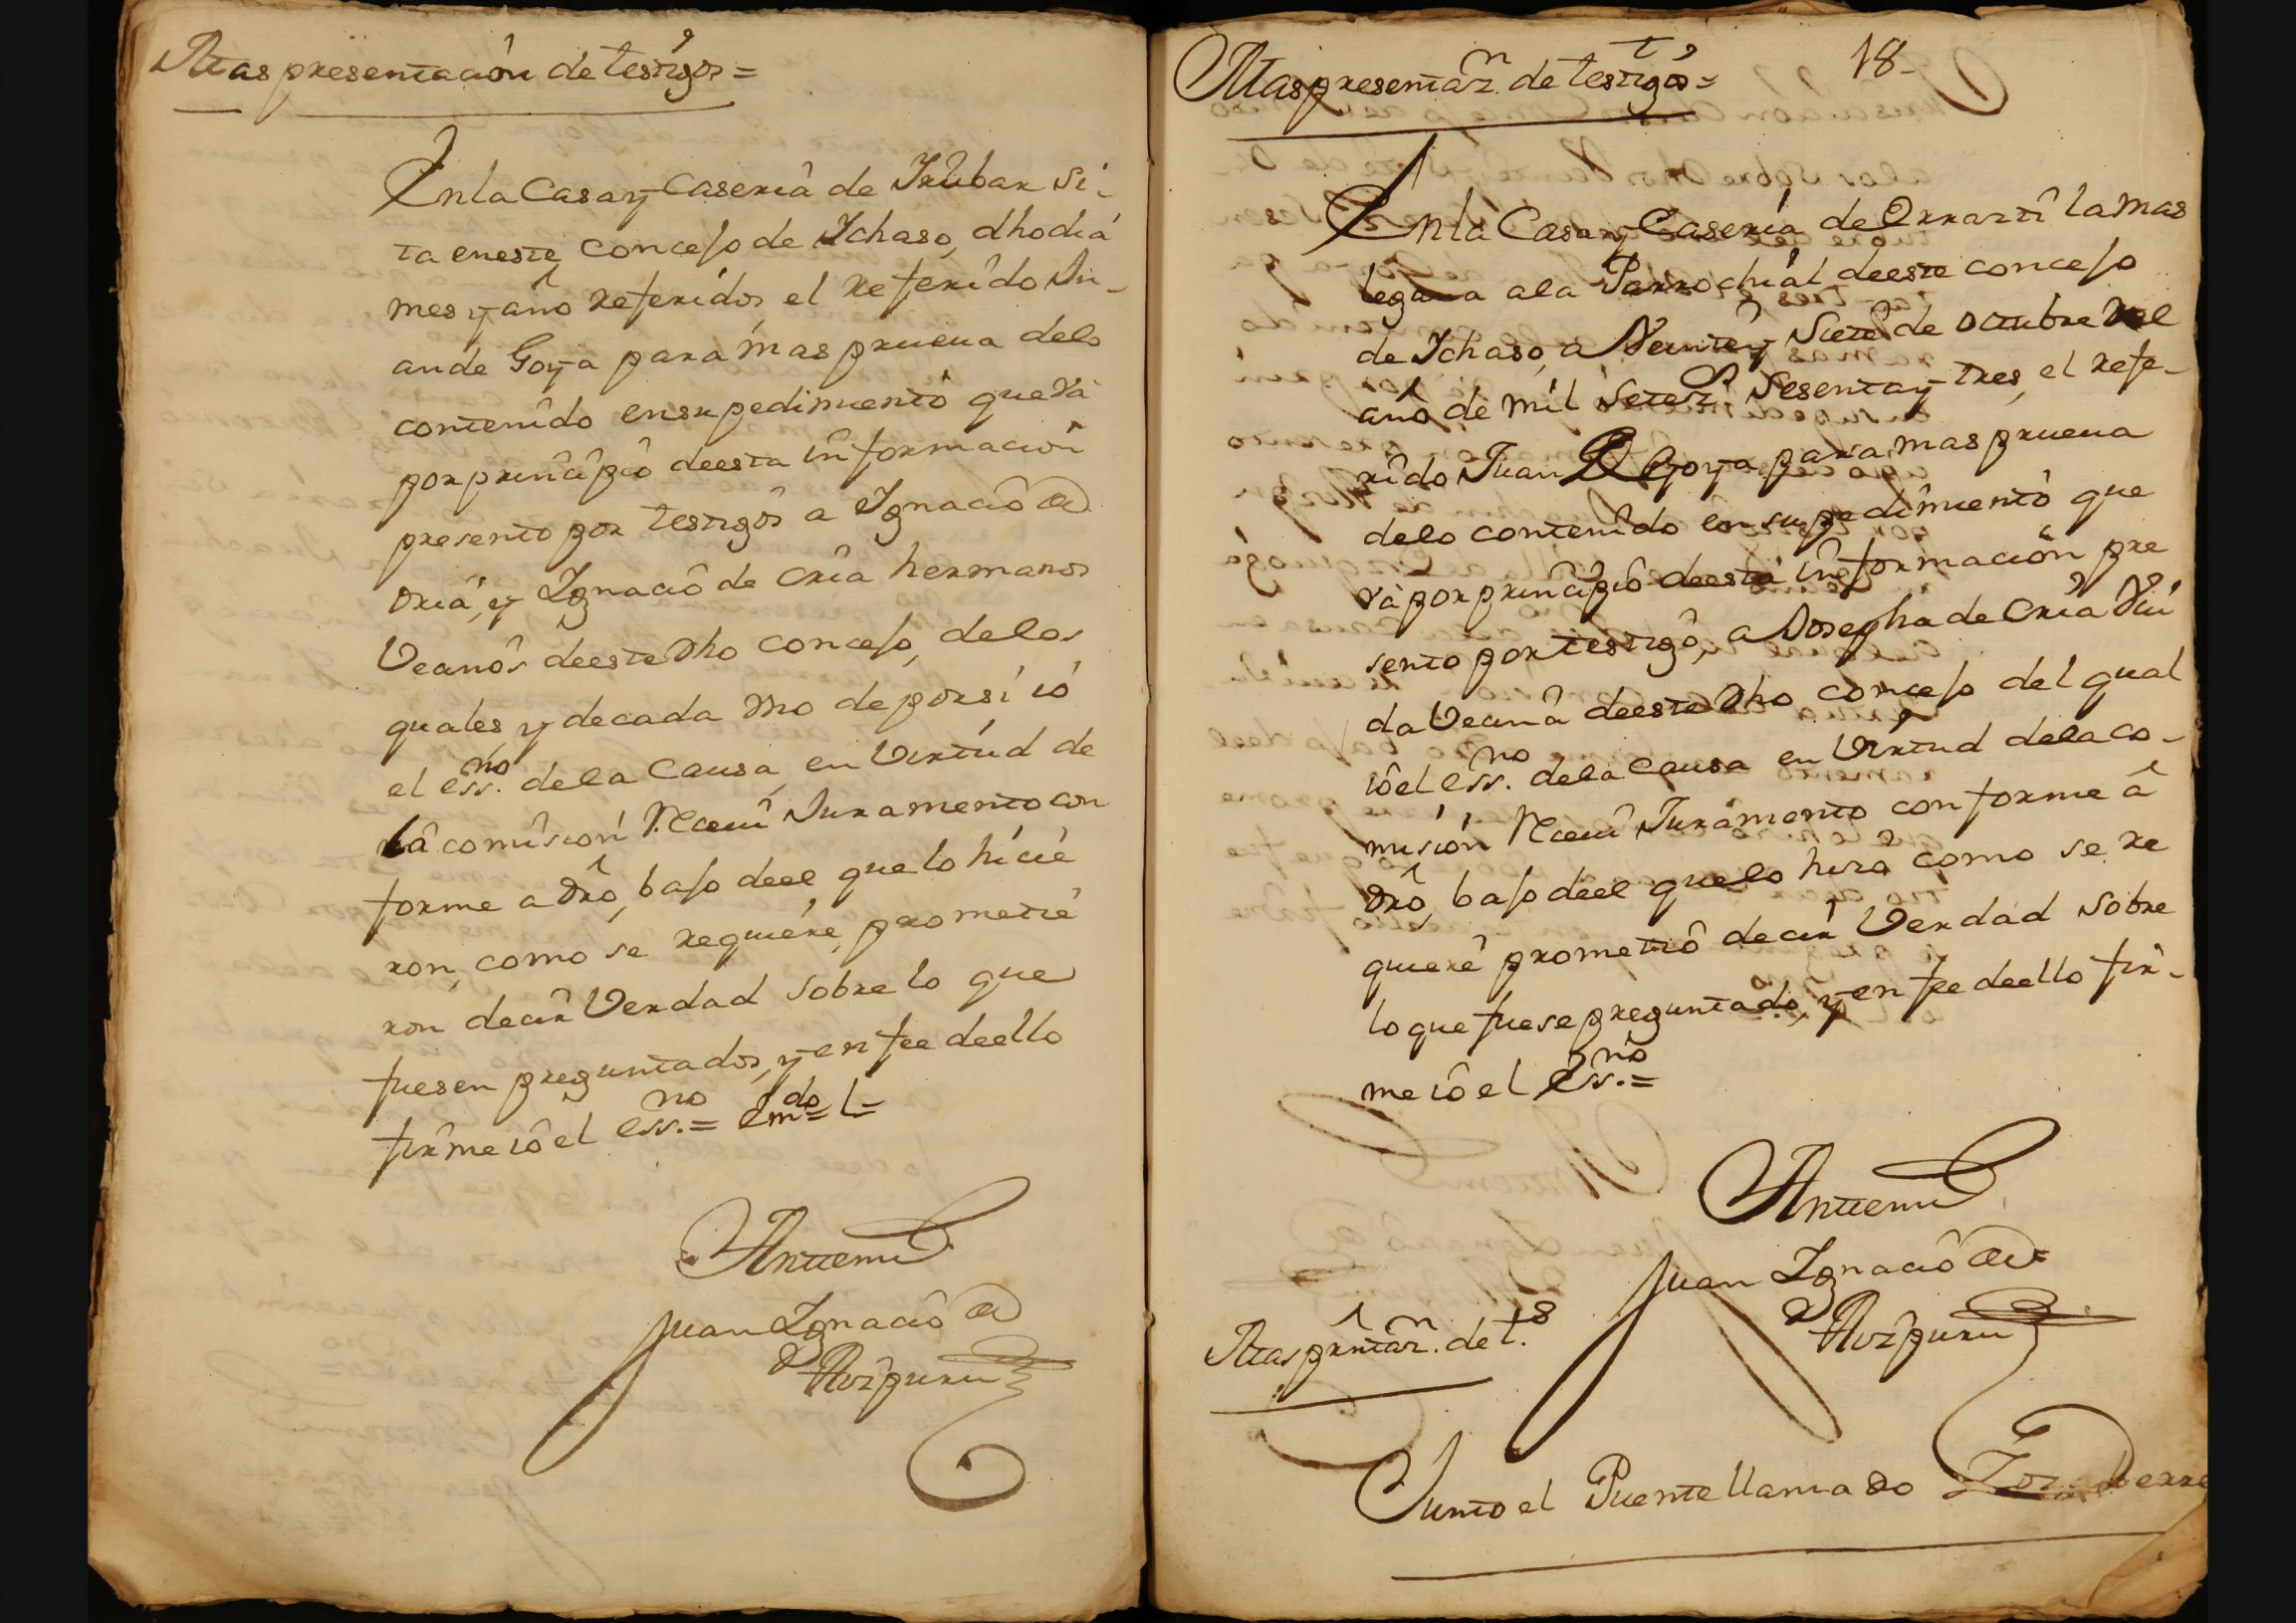 Mas presentación de testigos=
En la Casa y Caseria de Irubar si-
ta en este concejo de Ichaso, dho dia
mes y año referidos, el referido Ju-
an de Goya para mas prueva delo
contenido en su pedimiento que va
por principio de esta informacion
presento por testigos a Ignacio de
Oria, y Ignacio de Oria hermanos
Vecinos de este dho concejo, delos
quales y de cada Vno de por si io
el ess.no de la Causa, en Virtud de
la comision Reciui Juramento con
forme a dro, bajo de el que lo hicie
ron, como se requiere, prometie
ron decir Verdad sobre lo que
fuesen preguntados, y en fee de ello
firme io el ess.no= em.do= l=
Ante mi
Juan Ignacio de
Aizpuru
18-
Mas presentaz.n de testigos=
En la Casa y Caseria de Orrazti la mas
legana a la Parrochial de este concejo
de Ichaso, a Veinte y Siete de Octubre del
año de mil Setez.s Sesenta y tres, el refe-
rido Juan de Goya para mas prueva
delo contenido en su pedimiento que
va por principio de esta informacion pre
sento por testigo, a Josepha de Oria Viu
da Vecina de este dho concejo del qual
io el ess.no de la causa en Virtud de la co-
mision Reciui Juramento conforme a
dro, bajo de el que lo hizo como se re
quiere prometio decir Verdad sobre
lo que fuese preguntado, y en fee de ello fir-
me io el ess.no=
Ante mi
Juan Ignacio de
Aizpuru
Mas prntaz.n de t.s
Junto el Puente llamado